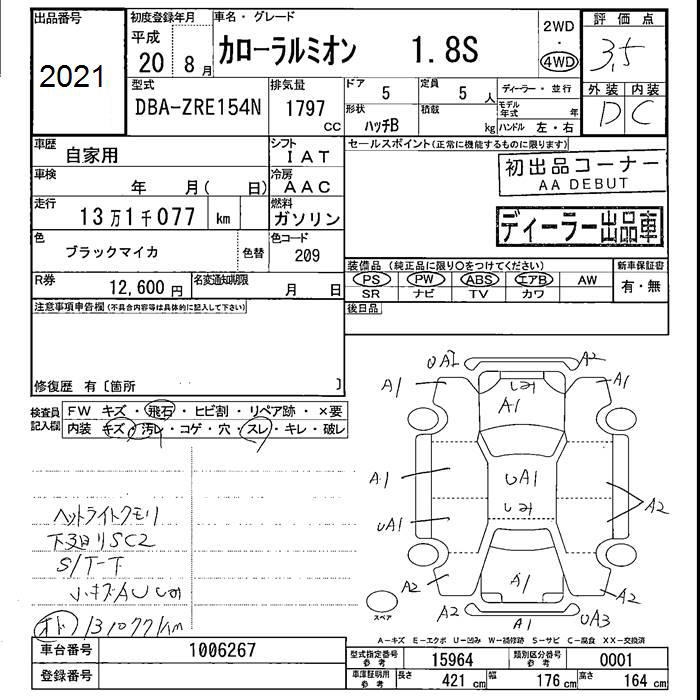 出品番号
2021
初度登録年月
平成
20 8月
車名・グレード
カローラルミオン 1.8S
2WD
・
4WD
評価点
3,5
外装 内装
D C
型式
DBA-ZRE154N
排気量
1797
cc
ドア 5
定員 5 人
ディーラー・並行
形状
ハッチB
積載
kg
モデル年式 年
ハンドル 左・右
車歴
自家用
シフト
IAT
セールスポイント(正常に機能するものに限ります)
初出品コーナー
AA DEBUT
車検
年 月( 日)
冷房
AAC
走行
13万1千077 km
燃料
ガソリン
ディーラー出品車
色
ブラックマイカ
色替
色コード
209
装備品 (純正品に限り○をつけてください)
新車保証書
PS PW ABS エアB AW
有・無
SR ナビ TV カワ
R券
12,600 円
名変通知期限
月 日
注意事項申告欄(不具合内容等は具体的に記入して下さい)
後日品
修復歴 有〔箇所 〕
検査員
記入欄
FW キズ・飛石・ヒビ割・リペア跡・×要
内装 キズ・汚レ・コゲ・穴・スレ・キレ・破レ
ヘットライトクモリ
S/T-T
小キズAUしみ
オド 131077km
UA1 A2
A1 しみ A1
A1
A1 UA1
しみ A2
UA1
A2 A1 A2
A2 A1 UA3
スペア
A-キズ E-エクボ U-凹み W-補修跡 S-サビ C-腐食 XX-交換済
車台番号 1006267
登録番号
型式指定番号
参考
15964
類別区分番号
参考
0001
車庫証明用
参考
長さ 421 cm
幅 176 cm
高さ 164 cm